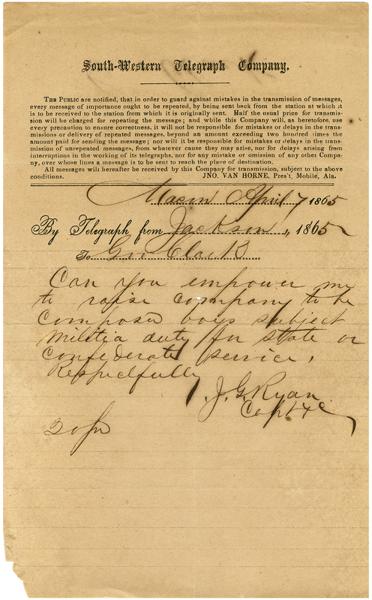 South-Western Telegraph Company.
THE PUBLIC are notified, that in order to guard against mistakes in the transmission of messages,
every message of importance ought to be repeated, by being sent back from the station at which it
is to be received to the station from which it is originally sent. Half the usual price for transmission
will be charged for repeating the message; and while this Company will, as heretofore, use
every precaution to ensure correctness, it will not be responsible for mistakes or delays in the trans-
missions or delivery of repeated messages, beyond an amount exceeding two hundred times the
amount paid for sending the message; nor will it be responsible for mistakes or delays in the trans-
mission of unrepeated messages, from whatever cause they may arise, nor for delays arising from
interruptions in the working of its telegraphs, nor for any mistake or omission of any other Com-
pany, over whose lines a message is to be sent to reach the place of destination.
All messages will hereafter be received by this Company for transmission, subject to the above
conditions. JNO. VAN HORNE, Pres't, Mobile, Ala.
Macon April 7 1865
By Telegraph from Jackson 1865
To Gov Clark
Can you empower me
to raise company to be
composed boys subject
militia duty for state or
confederate service,
Respectfully
J. G. Ryan
Capt &c